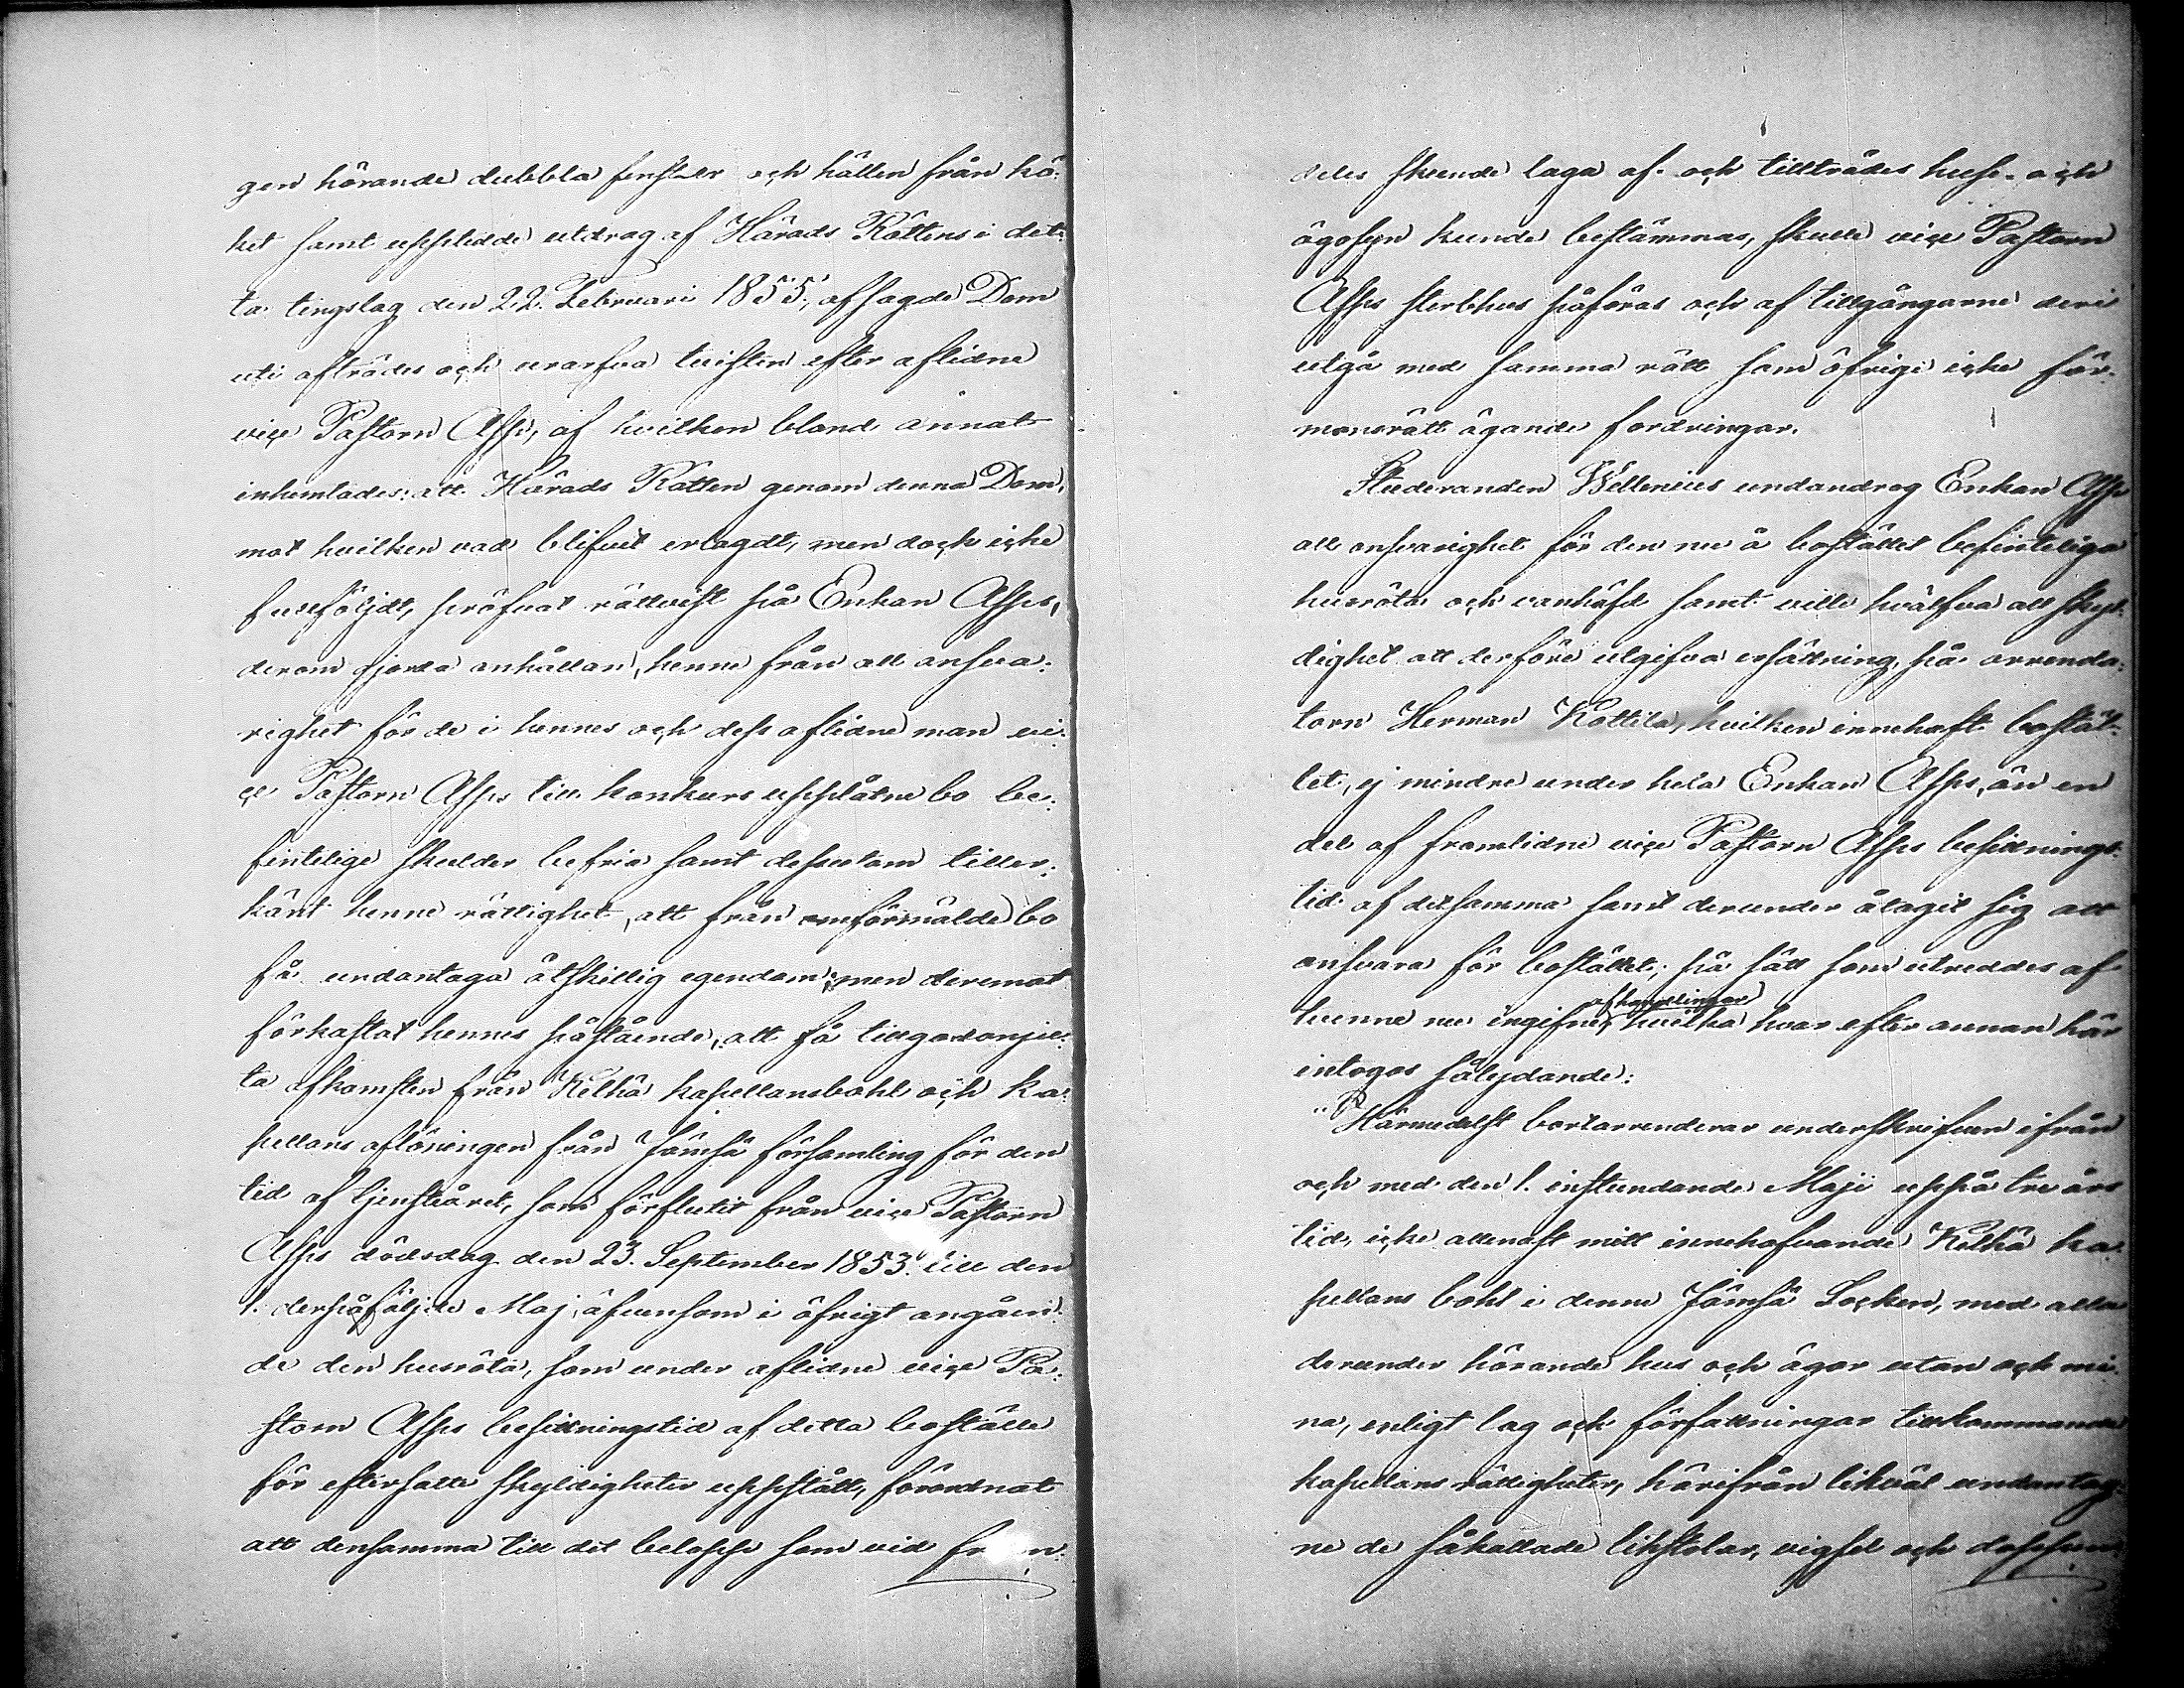 gen hörande dubbla fenster och hällen från kö-
ket samt upptedde utdrag af Härads Rättens i det-
ta tingslag den 22. Februari 1855, afsagde Dom
uti afträdes och urarfva tvisten efter aflidne
vice Pastorn Asp, af hvilken bland annat
inhemtades: att Härads Rätten genom denna Dom,
mot hvilken vad blifvit erlagdt, men dock icke
fullföljdt, pröfvat rättvist på Enkan Asps,
derom gjorda anhållan, henne från all ansva-
righet för de i hennes och dess aflidne man vi-
ce Pastorn Asps till konkurs upplåtne bo be-
fintelige skulder befria samt dessutom tiller-
känt henne rättighet, att från omförmälde bo
få undantaga åtskillig egendom; men deremot
förkastat hennes påstående, att få tillgodonju-
ta afkomsten från Kelhä kapellansbohl och ka-
pellans aflöningen från Jämsä församling för den
tid af tjensteåret, som förflutit från vice Pastorn
Asps dödsdag den 23. September 1853. till den
1. derpåföljde Maj, äfvensom i öfrigt angåen-
de den husröta, som under aflidne vice Pa-
storn Asps besittningstid af detta boställe
för eftersatte skyldigheter uppstått, förordnat
att densamma till det belopp som vid
deles skeende laga af- och tillträdes huse- och
ägosyn kunde bestämmas, skulle vice Pastorn
Asps sterbhus påföras och af tillgångarne deri
utgå med samma rätt som öfrige icke för-
monsrätt ägande fordringar.
Studeranden Wellenius undandrog Enkan Asp
all ansvarighet för den nu å bostället befinteliga
husröta och vanhäfd samt ville hvälfva all skyl-
dighet att derföre utgifva ersättning, på arrenda-
torn Herman Kottila, hvilken innehaft bostäl-
let, ej mindre under hela Enkan Asps, än en
del af framlidne vice Pastorn Asps besittnings-
tid af detsamma samt derunder ålagit sig att
ansvara för bostället, på sätt som utreddes af
tvenne nu ingifne afhandlingar hvilka hvar efter annan här
intogos sålydande:
"Härmedelst bortarrenderar underskrifven ifrån
och med den 1. instundande Maji uppå tre års
tid, icke allenast mitt innehafvande Kelhä ka-
pellans bohl i denne Jämsä Socken, med alla
derunder hörande hus och ägor utan och mi-
na, enligt lag och författningar tillkommande
kapellans rättigheter, härifrån likväl undantag-
ne de såkallade likstolar, vigsel och